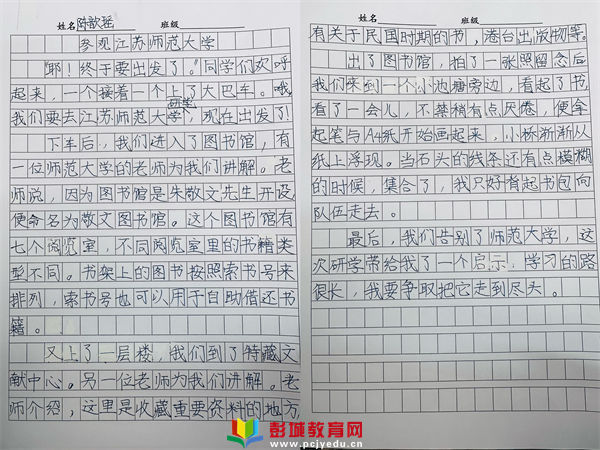 姓名 陈歆瑶 班级
参观江苏师范大学
“耶！终于要出发了。”同学们欢呼
起来，一个接着一个上了大巴车。哦，
研学
我们要去江苏师范大学，现在出发了！
下车后，我们进入了图书馆，有
一位师范大学的老师为我们讲解。老
师说，因为图书馆是朱敬文先生开设，
便命名为敬文图书馆。这个图书馆有
七个阅览室，不同阅览室里的书籍类
型不同。书架上的图书按照索书号来
排列，索书号也可以用于自助借还书
籍。
又上了一层楼，我们到了特藏文
献中心。另一位老师为我们讲解。老
师介绍，这里是收藏重要资料的地方，
姓名 班级
有关于民国时期的书，港台出版物等。
出了图书馆，拍了一张照留念后
我们来到一个小池塘旁边，看起了书，
看了一会儿，不禁稍有点厌倦，便拿
起笔与A4纸开始画起来，小桥渐渐从
纸上浮现。当石头的线条还有点模糊
的时候，集合了，我只好背起书包向
队伍走去。
最后，我们告别了师范大学，这
次研学带给我了一个启示：学习的路
很长，我要争取把它走到尽头。
彭城教育网
www.pcjyedu.cn